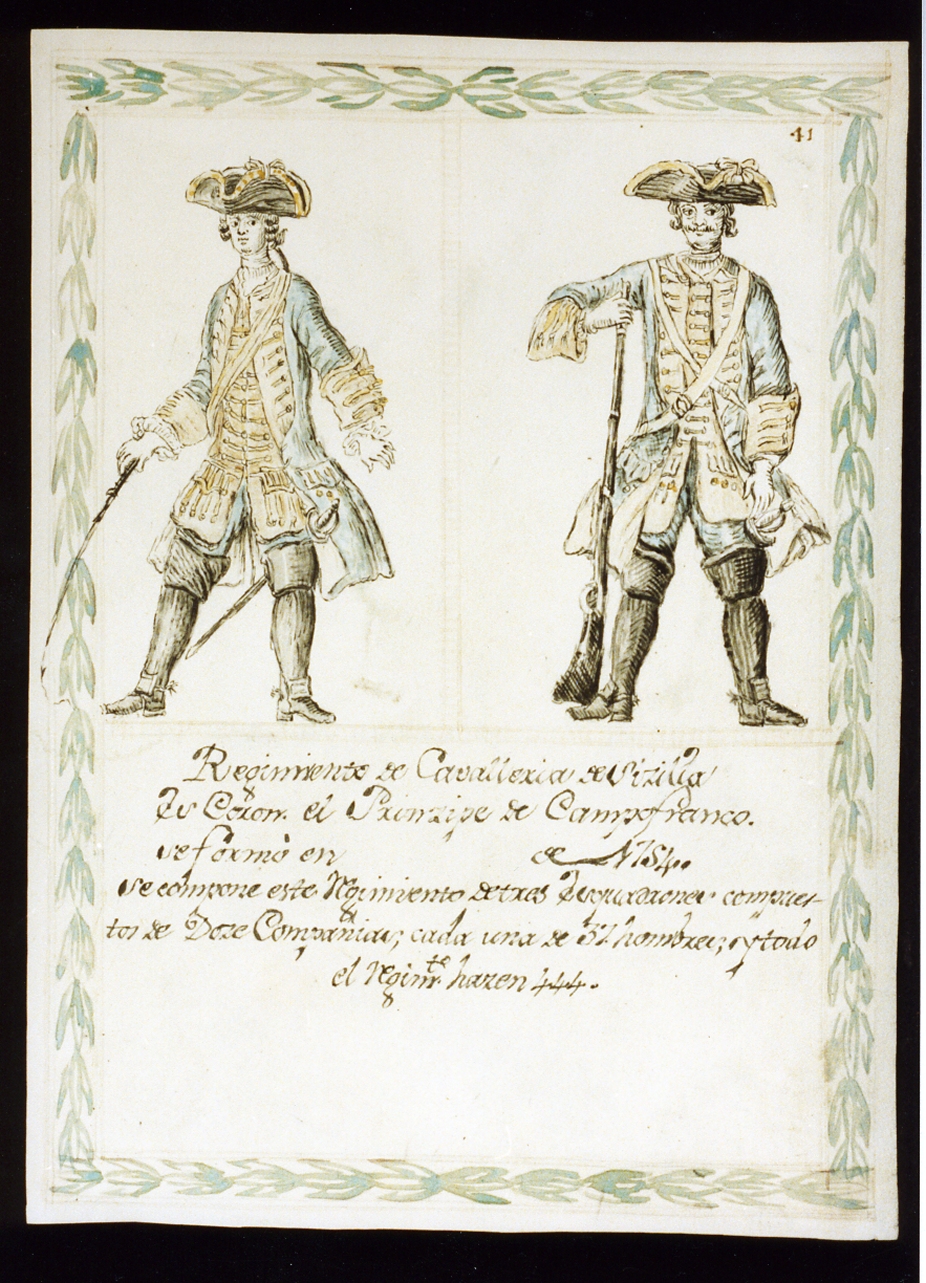 41
Regimiento de Cavalleria de Sizilia
Es Coron. el Prinzipe de Campofranco.
se formò en de 1734.
se compone este Regimiento de tres Esquadrones compues-
tos de Doze Companias, cada una de 37 hombres, y todo
el Regim.to hazen 444.